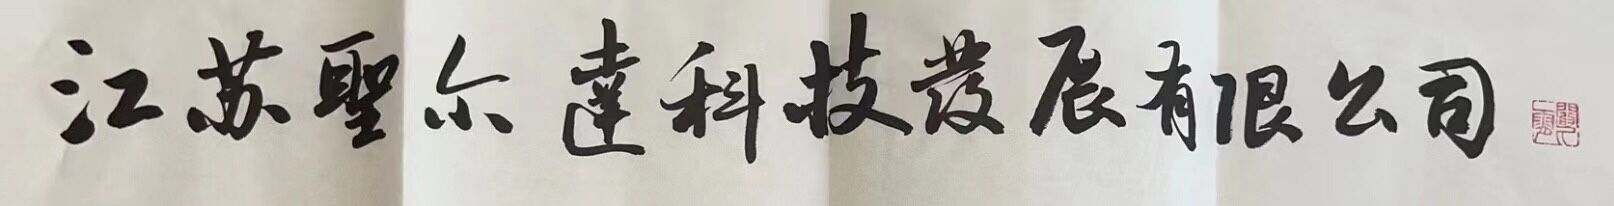 江苏聖尔達科技發展有限公司